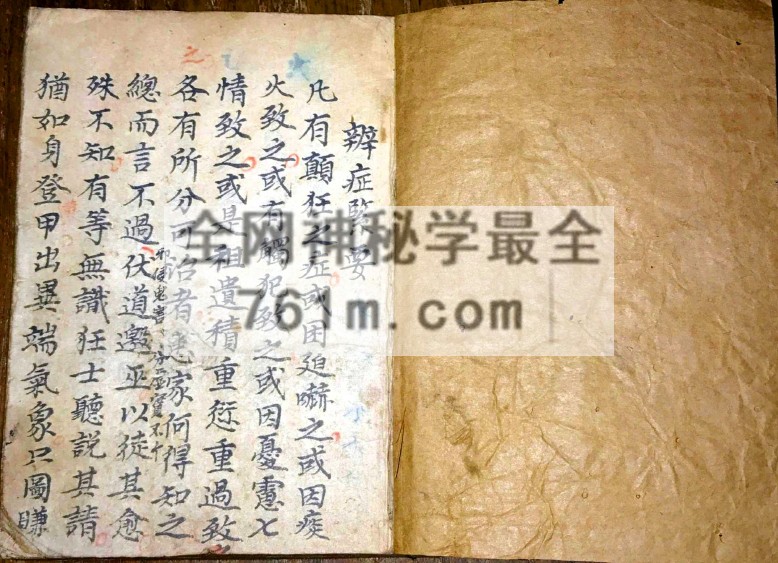 辨症醫要
凡有顛狂之症或因廹嚇之或因痰
火致之或有觸犯致之或因憂慮七
情致之或是祖遺積重愆重過致
各有所分可治者 家何得知之
總而言不過伏道邀巫以徒其愈
邪侵鬼害
殊不知有等無識狂士聽説其請
猶如身登甲出異端氣象只圖賺
全网神秘学最全
761m.com